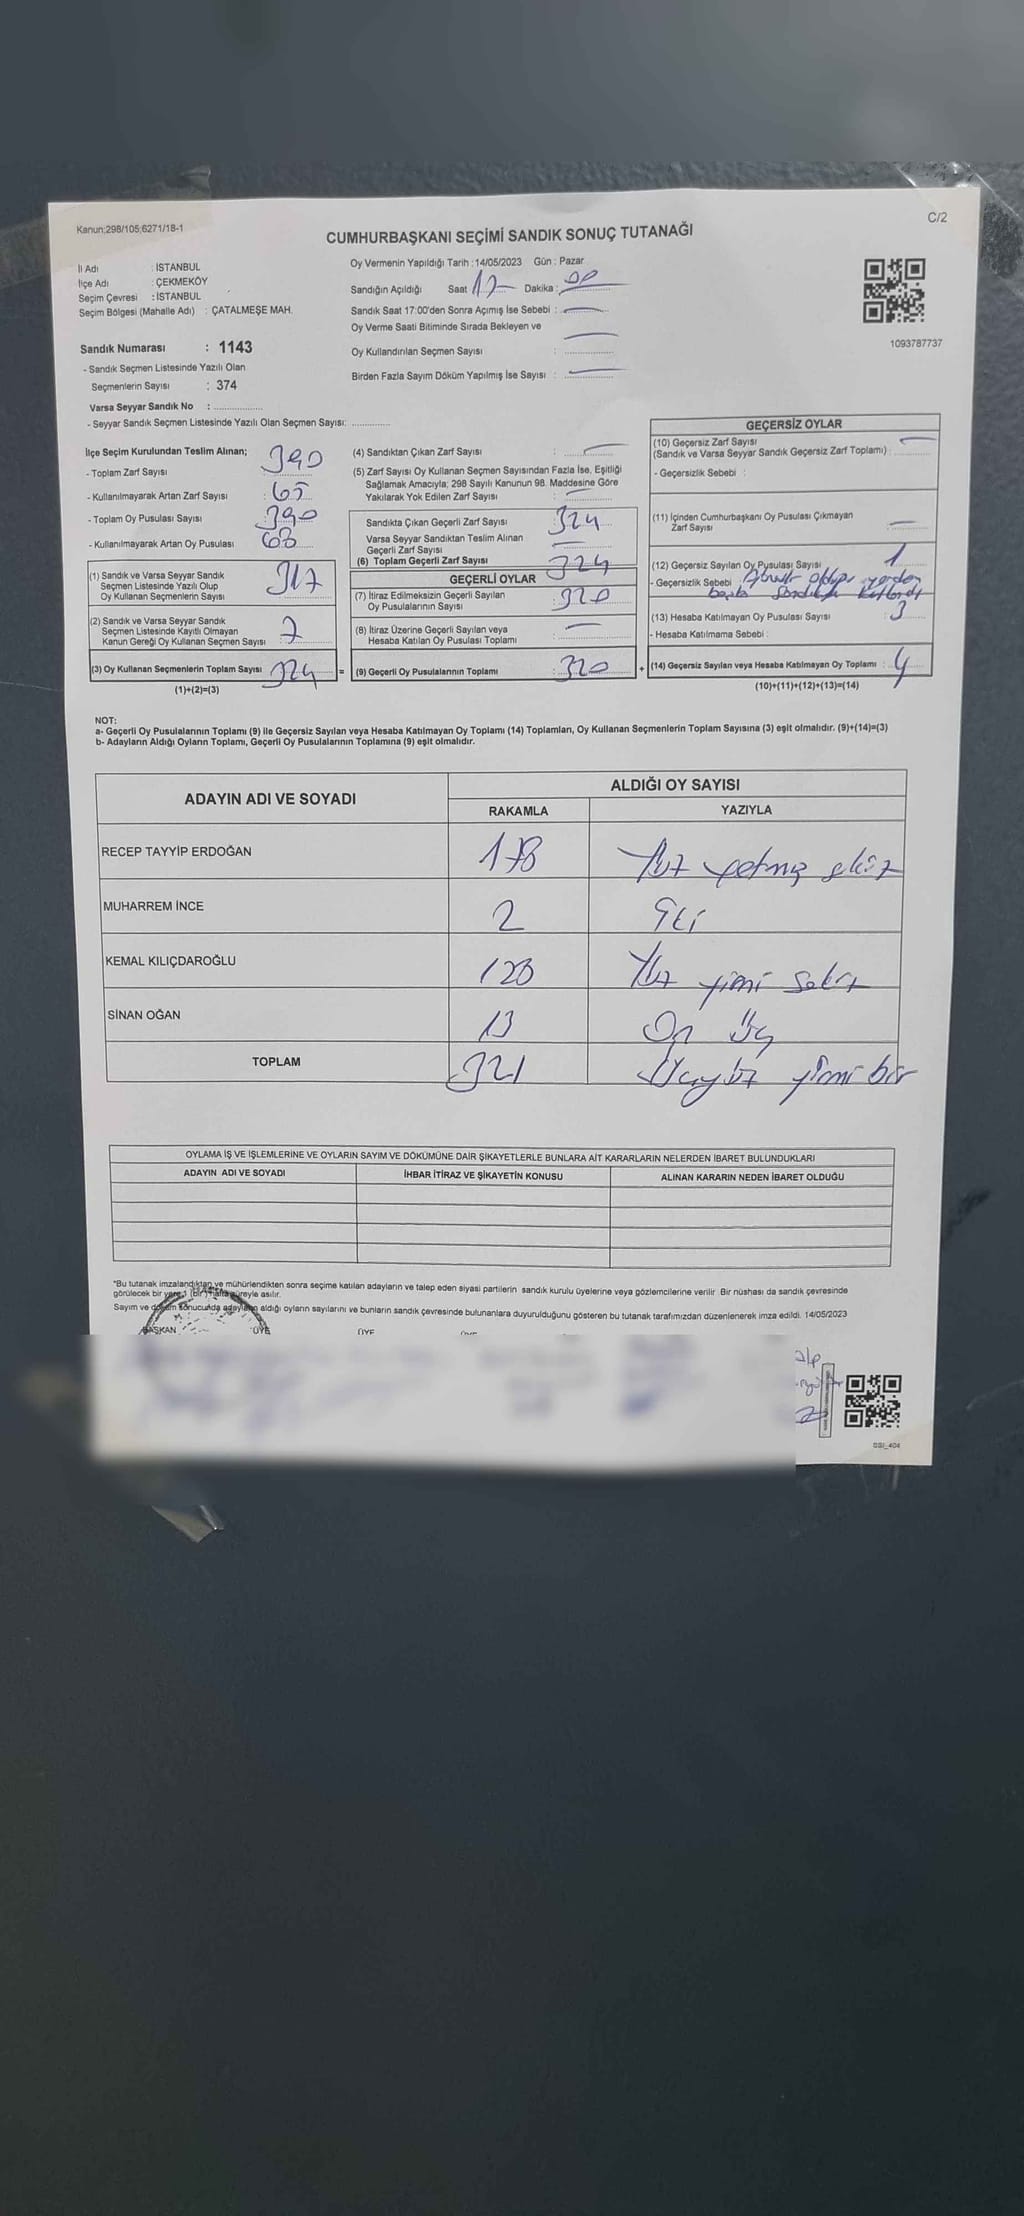 Kanun;298/105;6271/18-1
C/2
CUMHURBAŞKANI SEÇİMİ SANDIK SONUÇ TUTANAĞI
İl Adı : İSTANBUL
İlçe Adı : ÇEKMEKÖY
Seçim Çevresi : İSTANBUL
Seçim Bölgesi (Mahalle Adı) : ÇATALMEŞE MAH.
Sandık Numarası : 1143
- Sandık Seçmen Listesinde Yazılı Olan
Seçmenlerin Sayısı : 374
Varsa Seyyar Sandık No : ................
- Seyyar Sandık Seçmen Listesinde Yazılı Olan Seçmen Sayısı: ............
Oy Vermenin Yapıldığı Tarih : 14/05/2023 Gün : Pazar
Sandığın Açıldığı Saat 17 Dakika : 00
Sandık Saat 17:00'den Sonra Açımış İse Sebebi : —
Oy Verme Saati Bitiminde Sırada Bekleyen ve
Oy Kullandırılan Seçmen Sayısı : —
Birden Fazla Sayım Döküm Yapılmış İse Sayısı : —
1093787737
İlçe Seçim Kurulundan Teslim Alınan;
- Toplam Zarf Sayısı : 390
- Kullanılmayarak Artan Zarf Sayısı : 65
- Toplam Oy Pusulası Sayısı : 390
- Kullanılmayarak Artan Oy Pusulası : 63
(1) Sandık ve Varsa Seyyar Sandık
Seçmen Listesinde Yazılı Olup
Oy Kullanan Seçmenlerin Sayısı : 317
(2) Sandık ve Varsa Seyyar Sandık
Seçmen Listesinde Kayıtlı Olmayan
Kanun Gereği Oy Kullanan Seçmen Sayısı : 7
(3) Oy Kullanan Seçmenlerin Toplam Sayısı : 324 =
(1)+(2)=(3)
(4) Sandıktan Çıkan Zarf Sayısı : —
(5) Zarf Sayısı Oy Kullanan Seçmen Sayısından Fazla İse, Eşitliği
Sağlamak Amacıyla; 298 Sayılı Kanunun 98. Maddesine Göre
Yakılarak Yok Edilen Zarf Sayısı : —
Sandıkta Çıkan Geçerli Zarf Sayısı : 324
Varsa Seyyar Sandıktan Teslim Alınan
Geçerli Zarf Sayısı : —
(6) Toplam Geçerli Zarf Sayısı : 324
GEÇERLİ OYLAR
(7) İtiraz Edilmeksizin Geçerli Sayılan
Oy Pusulalarının Sayısı : 320
(8) İtiraz Üzerine Geçerli Sayılan veya
Hesaba Katılan Oy Pusulası Toplamı : —
(9) Geçerli Oy Pusulalarının Toplamı : 320 +
GEÇERSİZ OYLAR
(10) Geçersiz Zarf Sayısı
(Sandık ve Varsa Seyyar Sandık Geçersiz Zarf Toplamı) : —
- Geçersizlik Sebebi :
(11) İçinden Cumhurbaşkanı Oy Pusulası Çıkmayan
Zarf Sayısı : —
(12) Geçersiz Sayılan Oy Pusulası Sayısı : 1
- Geçersizlik Sebebi : olduğu yerden
başka sandıkta
(13) Hesaba Katılmayan Oy Pusulası Sayısı : 3
- Hesaba Katılmama Sebebi :
(14) Geçersiz Sayılan veya Hesaba Katılmayan Oy Toplamı : 4
(10)+(11)+(12)+(13)=(14)
NOT:
a- Geçerli Oy Pusulalarının Toplamı (9) ile Geçersiz Sayılan veya Hesaba Katılmayan Oy Toplamı (14) Toplamları, Oy Kullanan Seçmenlerin Toplam Sayısına (3) eşit olmalıdır. (9)+(14)=(3)
b- Adayların Aldığı Oyların Toplamı, Geçerli Oy Pusulalarının Toplamına (9) eşit olmalıdır.
ADAYIN ADI VE SOYADI ALDIĞI OY SAYISI
RAKAMLA YAZIYLA
RECEP TAYYİP ERDOĞAN 178 Yüz yetmiş sekiz
MUHARREM İNCE 2 İki
KEMAL KILIÇDAROĞLU 128 Yüz yirmi sekiz
SİNAN OĞAN 13 On Üç
TOPLAM 321 Üçyüz yirmi bir
OYLAMA İŞ VE İŞLEMLERİNE VE OYLARIN SAYIM VE DÖKÜMÜNE DAİR ŞİKAYETLERLE BUNLARA AİT KARARLARIN NELERDEN İBARET BULUNDUKLARI
ADAYIN ADI VE SOYADI İHBAR İTİRAZ VE ŞİKAYETİN KONUSU ALINAN KARARIN NEDEN İBARET OLDUĞU
*Bu tutanak imzalandıktan ve mühürlendikten sonra seçime katılan adayların ve talep eden siyasi partilerin sandık kurulu üyelerine veya gözlemcilerine verilir. Bir nüshası da sandık çevresinde
görülecek bir yere 1 (bir) hafta süreyle asılır.
Sayım ve döküm sonucunda adayların aldığı oyların sayılarını ve bunların sandık çevresinde bulunanlara duyurulduğunu gösteren bu tutanak tarafımızdan düzenlenerek imza edildi. 14/05/2023
BAŞKAN ÜYE ÜYE
alp
SSI_404